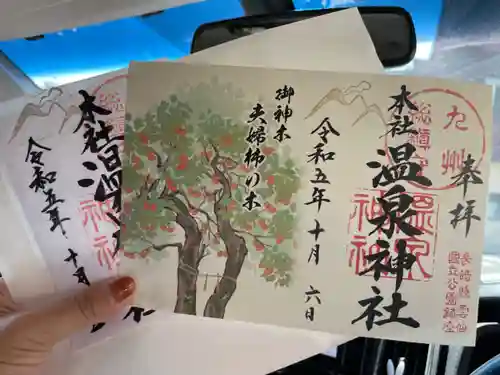 奉拝
九州
総鎮守
本社 温泉神社
長崎縣雲仙
國立公園鎮座
令和五年十月六日
御神木
夫婦柿の木
本社 温
令和五年
十月